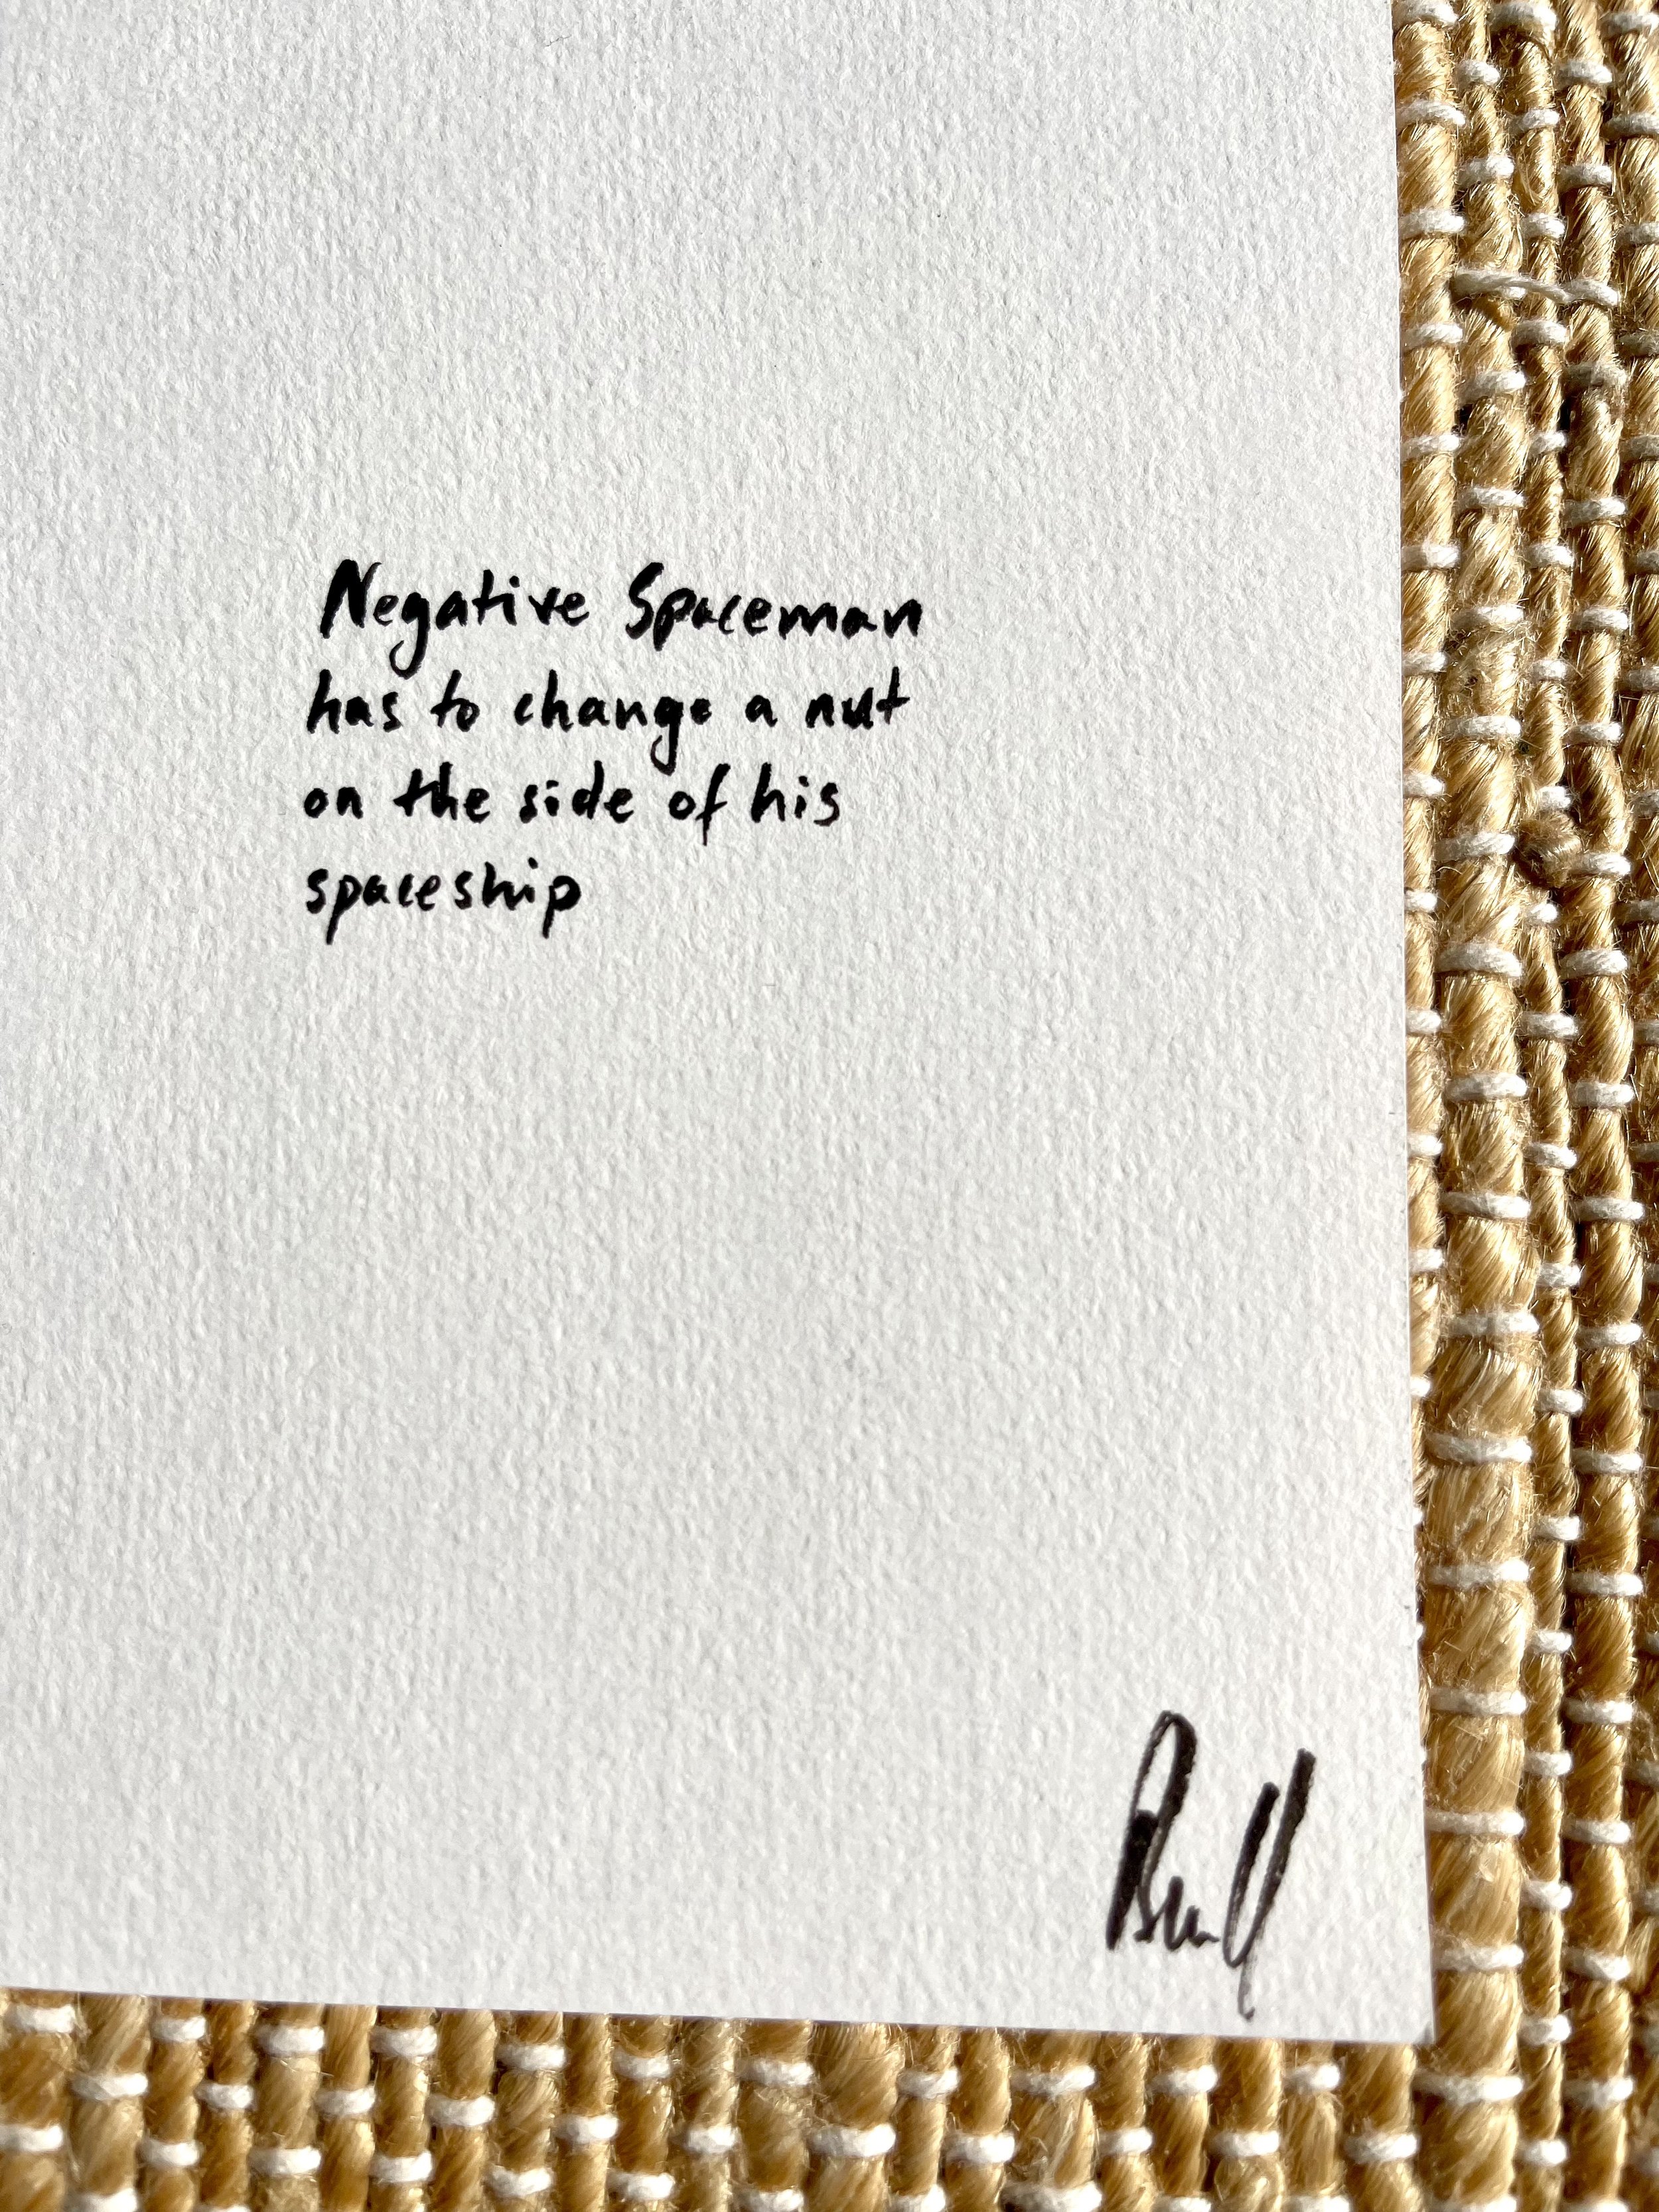 Negative Spaceman
has to change a nut
on the side of his
spaceship